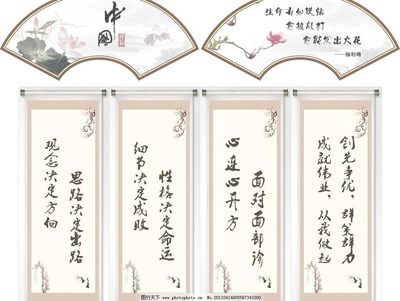 中国
生命有如铁砧
愈被敲打
愈能发出火花
——伽利略
观念决定方向
思路决定出路
细节决定成败
性格决定命运
心连心开方
面对面部诊
创先争优，群策群力
成就伟业，从我做起